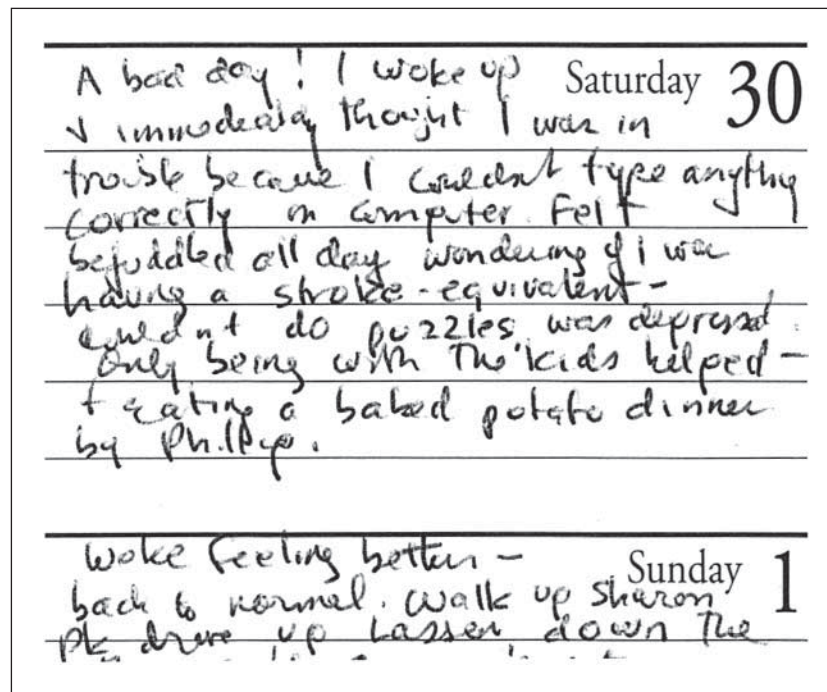 A bad day! I woke up Saturday 30
+ immediately thought I was in
trouble because I couldn't type anything
correctly on computer. Felt
befuddled all day wondering if I was
having a stroke-equivalent -
couldn't do puzzles, was depressed.
Only being with the kids helped -
+ eating a baked potato dinner
by Phillip.
Woke feeling better -
Sunday 1
back to normal. Walk up Sharon
Pk drive, up Lassen, down the